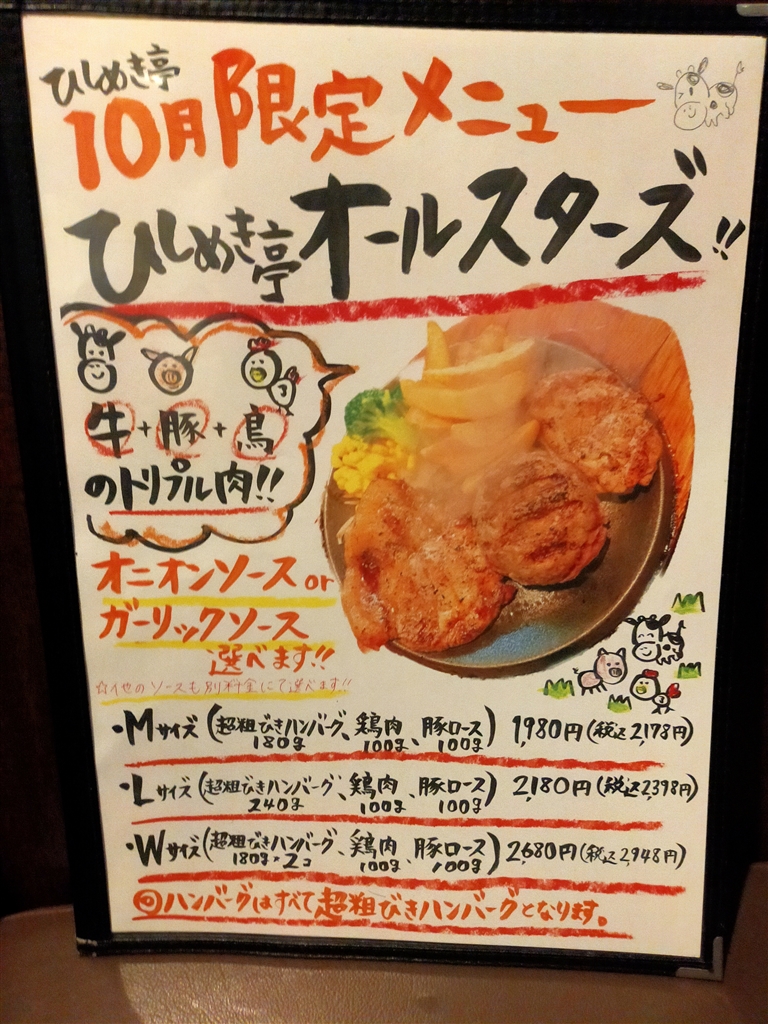 ひしめき亭
10月限定メニュー
ひしめき亭オールスターズ!!
牛+豚+鳥
のトリプル肉!!
オニオンソースor
ガーリックソース
選べます!!
☆他のソースも別料金にて選べます!!
・Mサイズ(超粗びきハンバーグ、鶏肉、豚ロース) 1,980円(税込2,178円)
180g 100g 100g
・Lサイズ(超粗びきハンバーグ、鶏肉、豚ロース) 2,180円(税込2,398円)
240g 100g 100g
・Wサイズ(超粗びきハンバーグ、鶏肉、豚ロース) 2,680円(税込2,948円)
180g×2コ 100g 100g
◎ハンバーグはすべて超粗びきハンバーグとなります。